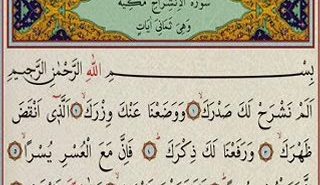 سُورَةُ الْاِنْشِرَاحِ مَكِّيَّةٌ
وَهِيَ ثَمَانِيَ اٰيَاتٍ
بِسْــــمِ اللهِ الرَّحْمٰنِ الرَّحٖيمِ
اَلَمْ نَشْرَحْ لَكَ صَدْرَكَۙ ﴿١﴾ وَوَضَعْنَا عَنْكَ وِزْرَكَۙ ﴿٢﴾ اَلَّذٖٓي اَنْقَضَ
ظَهْرَكَۙ ﴿٣﴾ وَرَفَعْنَا لَكَ ذِكْرَكَۜ ﴿٤﴾ فَاِنَّ مَعَ الْعُسْرِ يُسْرًاۙ ﴿٥﴾